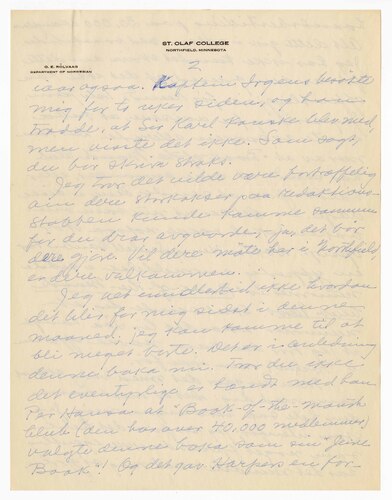 ST. OLAF COLLEGE
NORTHFIELD, MINNESOTA
O. E. RÖLVAAG
DEPARTMENT OF NORWEGIAN
2
vaar ogsaa. Kaptein Irgens besøkte
mig for to uker siden, og han
trodde, at Sir Karl kanske blev med,
men visste det ikke. Som sagt,
du bør skrive straks.
Jeg tror det vilde være fortræffelig
om dere storkakser paa redaktions-
stabben kunde komme sammen
før du drar avgaarde; ja, det bør
dere gjøre. Vil dere møte her i Northfield,
er dere velkommen.
Jeg vet imidlertid ikke hvordan
det blir for mig sidst i denne
maaned; jeg kan komme til at
bli meget borte. Det er i anledning
denne boka mi. Tror du ikke
det eventyrlige er hændt med han
Per Hansa at "Book-of-the-month
Club (den har over 40,000 medlemmer)
valgte denne boka som sin "June
Book"! Og det gav Harpers en for-